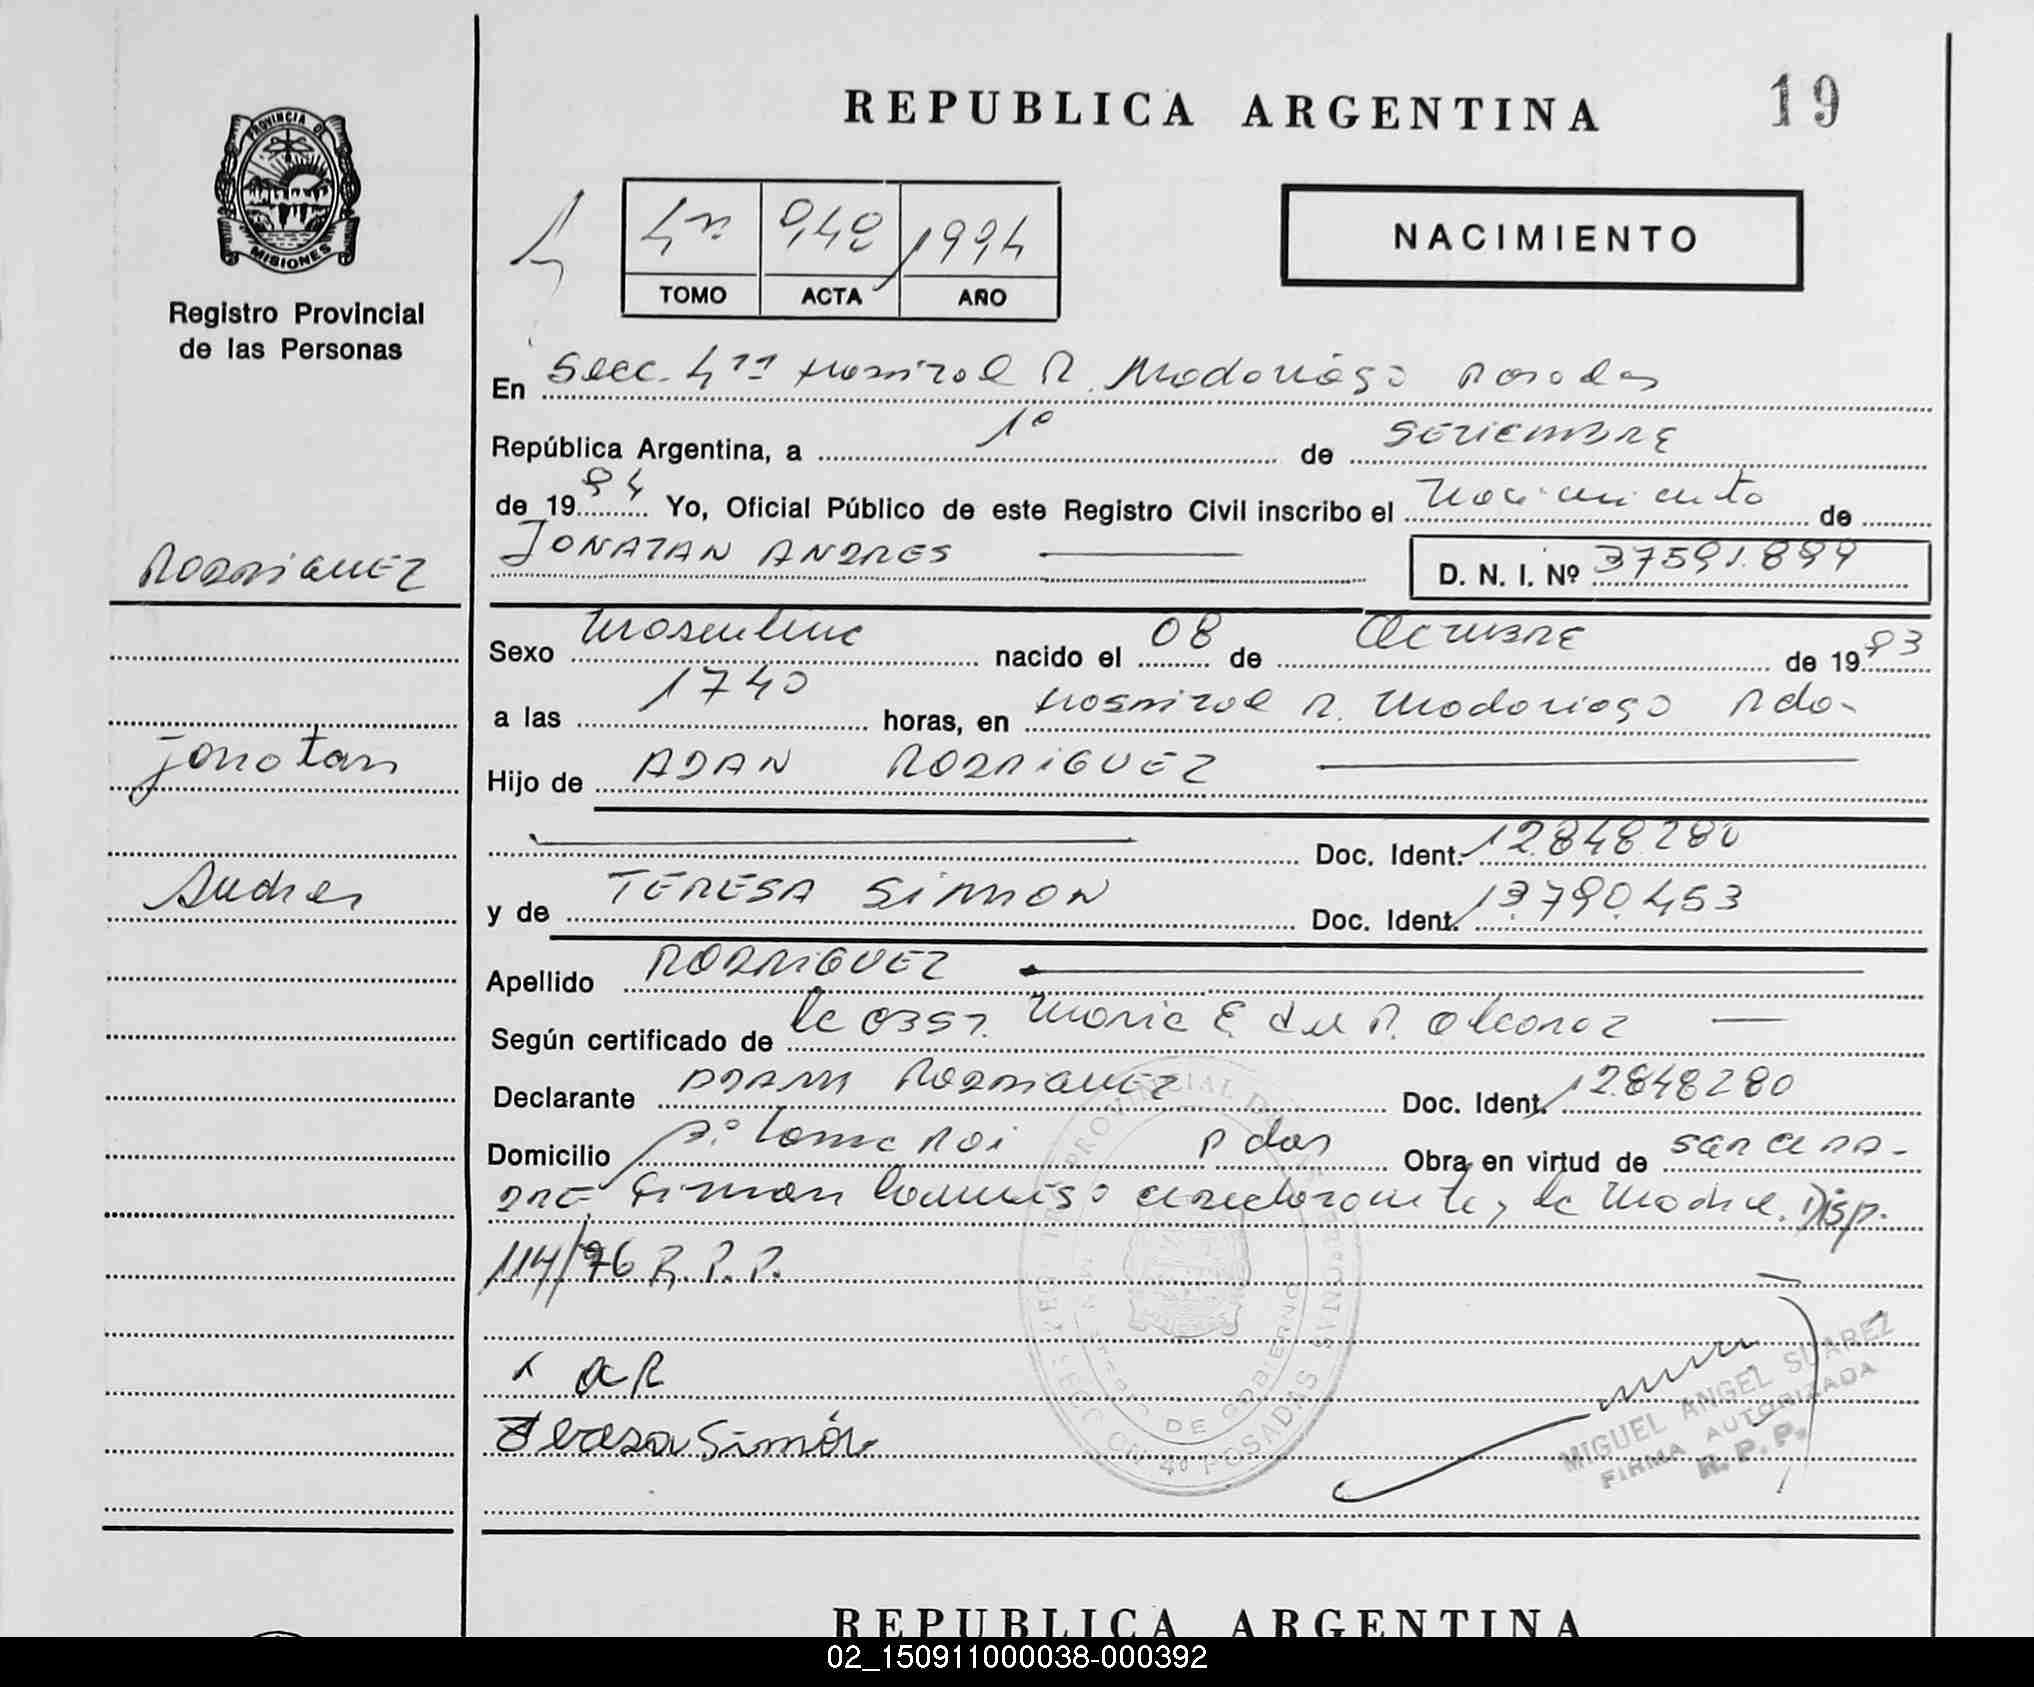 REPUBLICA ARGENTINA
19
PROVINCIA DE
MISIONES
Registro Provincial
de las Personas
4ª 942 1994
TOMO ACTA AÑO
NACIMIENTO
En Secc. 4ta Hospital R. Madariaga Posadas
República Argentina, a 1º de SETIEMBRE
de 1994 Yo, Oficial Público de este Registro Civil inscribo el Nacimiento de
JONATAN ANDRES D. N. I. Nº 37591.899
RODRIGUEZ
Sexo Masculino nacido el 08 de OCTUBRE de 1993
a las 1740 horas, en Hospital R. Madariaga Pdas
Jonatan
Hijo de ADAN RODRIGUEZ
Doc. Ident. 12.848.280
Andres
y de TERESA SIMON Doc. Ident. 13.790.453
Apellido RODRIGUEZ
Según certificado de la OBST. Maria E. del R. Alcaraz
Declarante ADAN RODRIGUEZ Doc. Ident. 12.848280
Domicilio Bº Pdas Obra en virtud de
firman conmigo el declarante, la Madre. Disp.
114/96 R. P. P.
x AR
Teresa Simón
REG. PROVINCIAL DE LAS PERSONAS
MINISTERIO DE GOBIERNO
SECC. 4º POSADAS
MIGUEL ANGEL SUAREZ
FIRMA AUTORIZADA
R. P. P.
REPUBLICA ARGENTINA
02_150911000038-000392